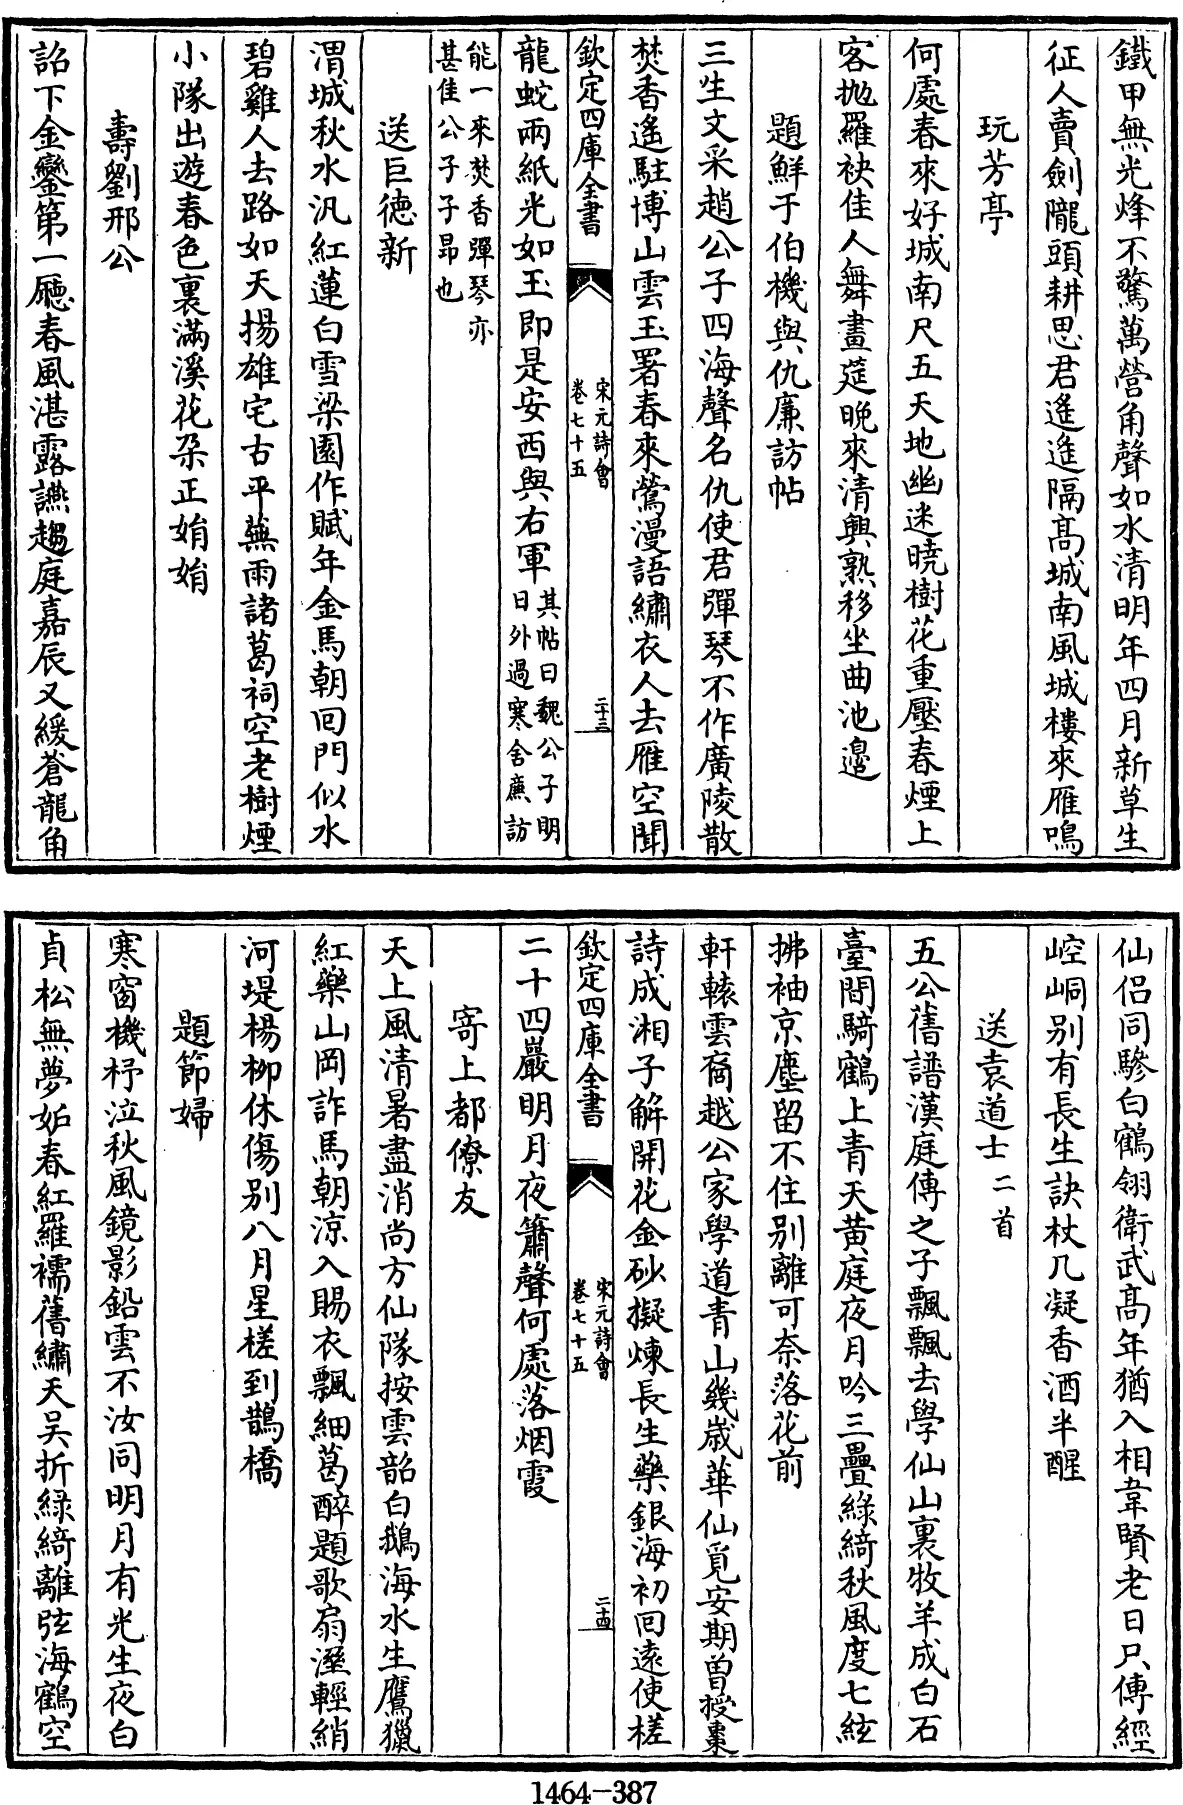 鐵甲無光烽不驚萬營角聲如水清明年四月新草生
征人賣劍隴頭耕思君遙遙隔高城南風城樓來雁鳴
玩芳亭
何處春來好城南尺五天地幽迷曉樹花重壓春煙上
客抛羅袂佳人舞畫莚晚來清興熟移坐曲池邊
題鮮于伯機與仇廉訪帖
三生文采趙公子四海聲名仇使君彈琴不作廣陵散
焚香遙駐博山雲玉署春來鶯漫語繡衣人去雁空聞
欽定四庫全書
宋元詩會
卷七十五
二十三
龍蛇兩紙光如玉即是安西與右軍其帖曰魏公子明
日外過寒舍廉訪
能一來焚香彈琴亦
甚佳公子子昂也
送巨德新
渭城秋水汎紅蓮白雪梁園作賦年金馬朝回門似水
碧雞人去路如天揚雄宅古平蕪雨諸葛祠空老樹煙
小隊出遊春色裏滿溪花朵正娟娟
壽劉邢公
詔下金鑾第一廳春風湛露讌趨庭嘉辰又緩蒼龍角
仙侶同驂白鶴翎衛武高年猶入相韋賢老日只傳經
崆峒别有長生訣杖几凝香酒半醒
送袁道士二首
五公舊譜漢庭傳之子飄飄去學仙山裏牧羊成白石
臺間騎鶴上青天黄庭夜月吟三疊綠綺秋風度七絃
拂袖京塵留不住别離可奈落花前
軒轅雲裔越公家學道青山幾歲華仙覓安期曽授棗
詩成湘子解開花金砂擬煉長生藥銀海初回遠使槎
欽定四庫全書
宋元詩會
卷七十五
二十四
二十四巖明月夜簫聲何處落烟霞
寄上都僚友
天上風清暑盡消尚方仙隊按雲韶白鵝海水生鷹獵
紅藥山岡詐馬朝涼入賜衣飄細葛醉題歌扇溼輕綃
河堤楊柳休傷别八月星槎到鵲橋
題節婦
寒窗機杼泣秋風鏡影鉛雲不汝同明月有光生夜白
貞松無夢妬春紅羅襦舊繡天吴折綠綺離弦海鶴空
1464-387